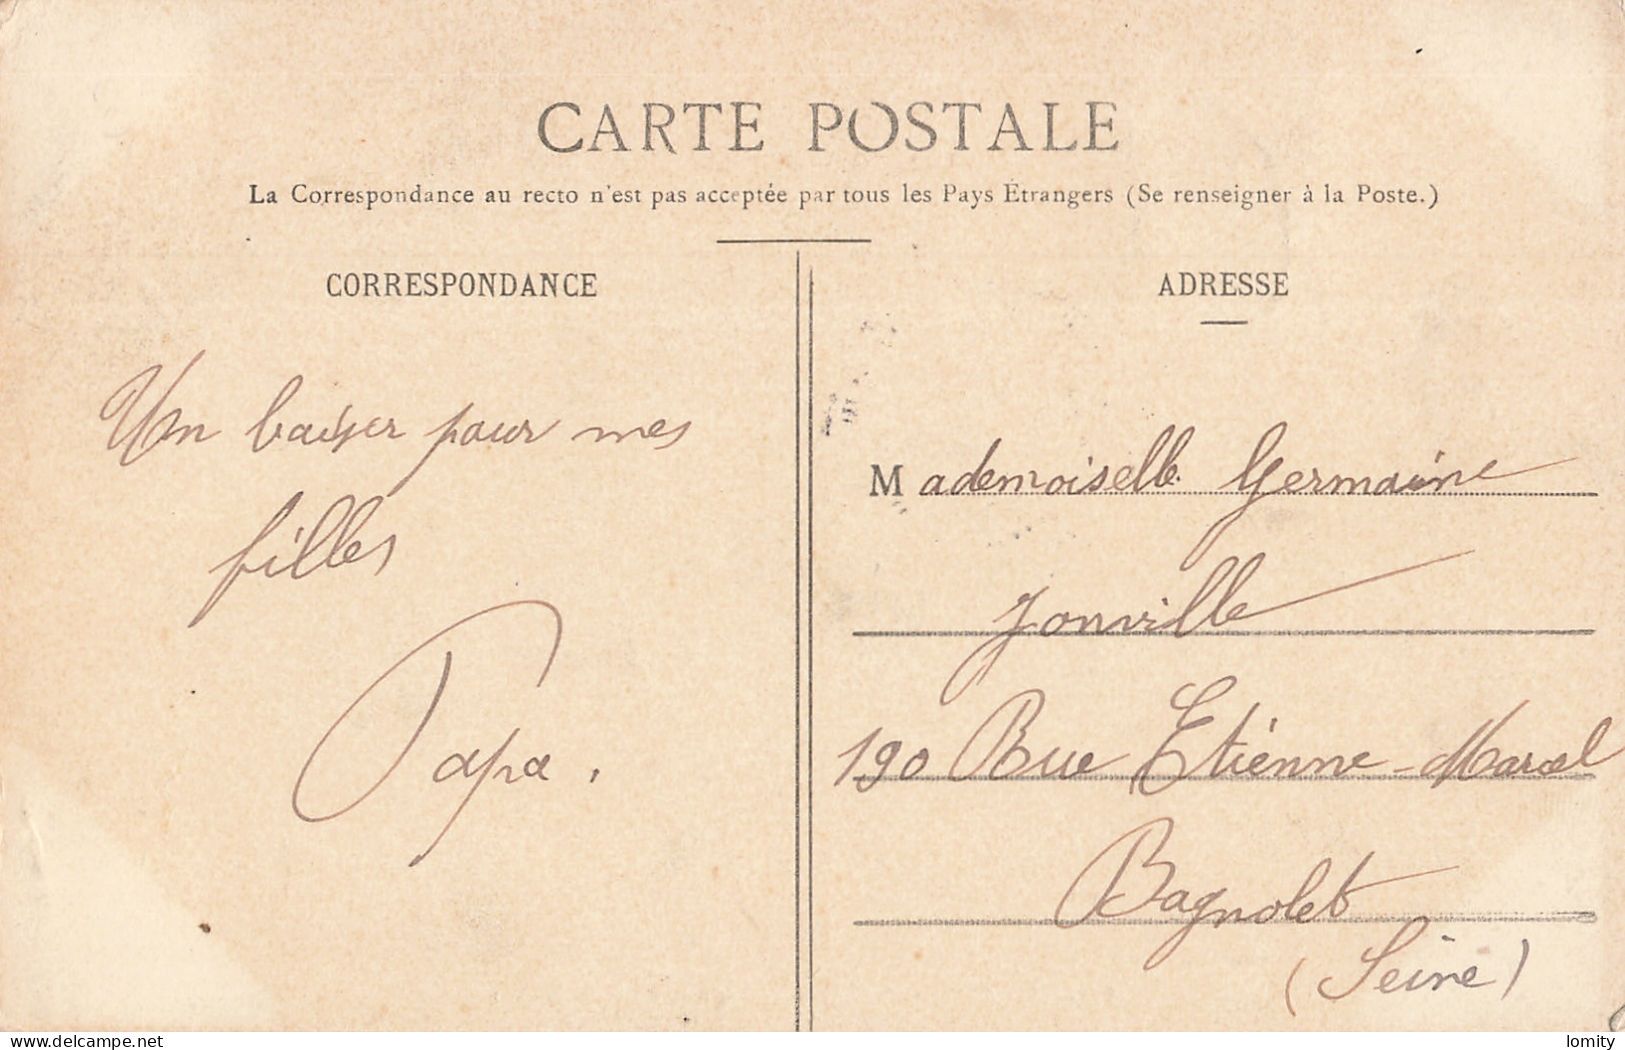 CARTE POSTALE
La Correspondance au recto n'est pas acceptée par tous les Pays Étrangers (Se renseigner à la Poste.)
CORRESPONDANCE
Un baiser pour mes
filles
Papa.
ADRESSE
Mademoiselle Germaine
Jonville
190 Rue Etienne-Marcel
Bagnolet
(Seine)
www.delcampe.net
lomity